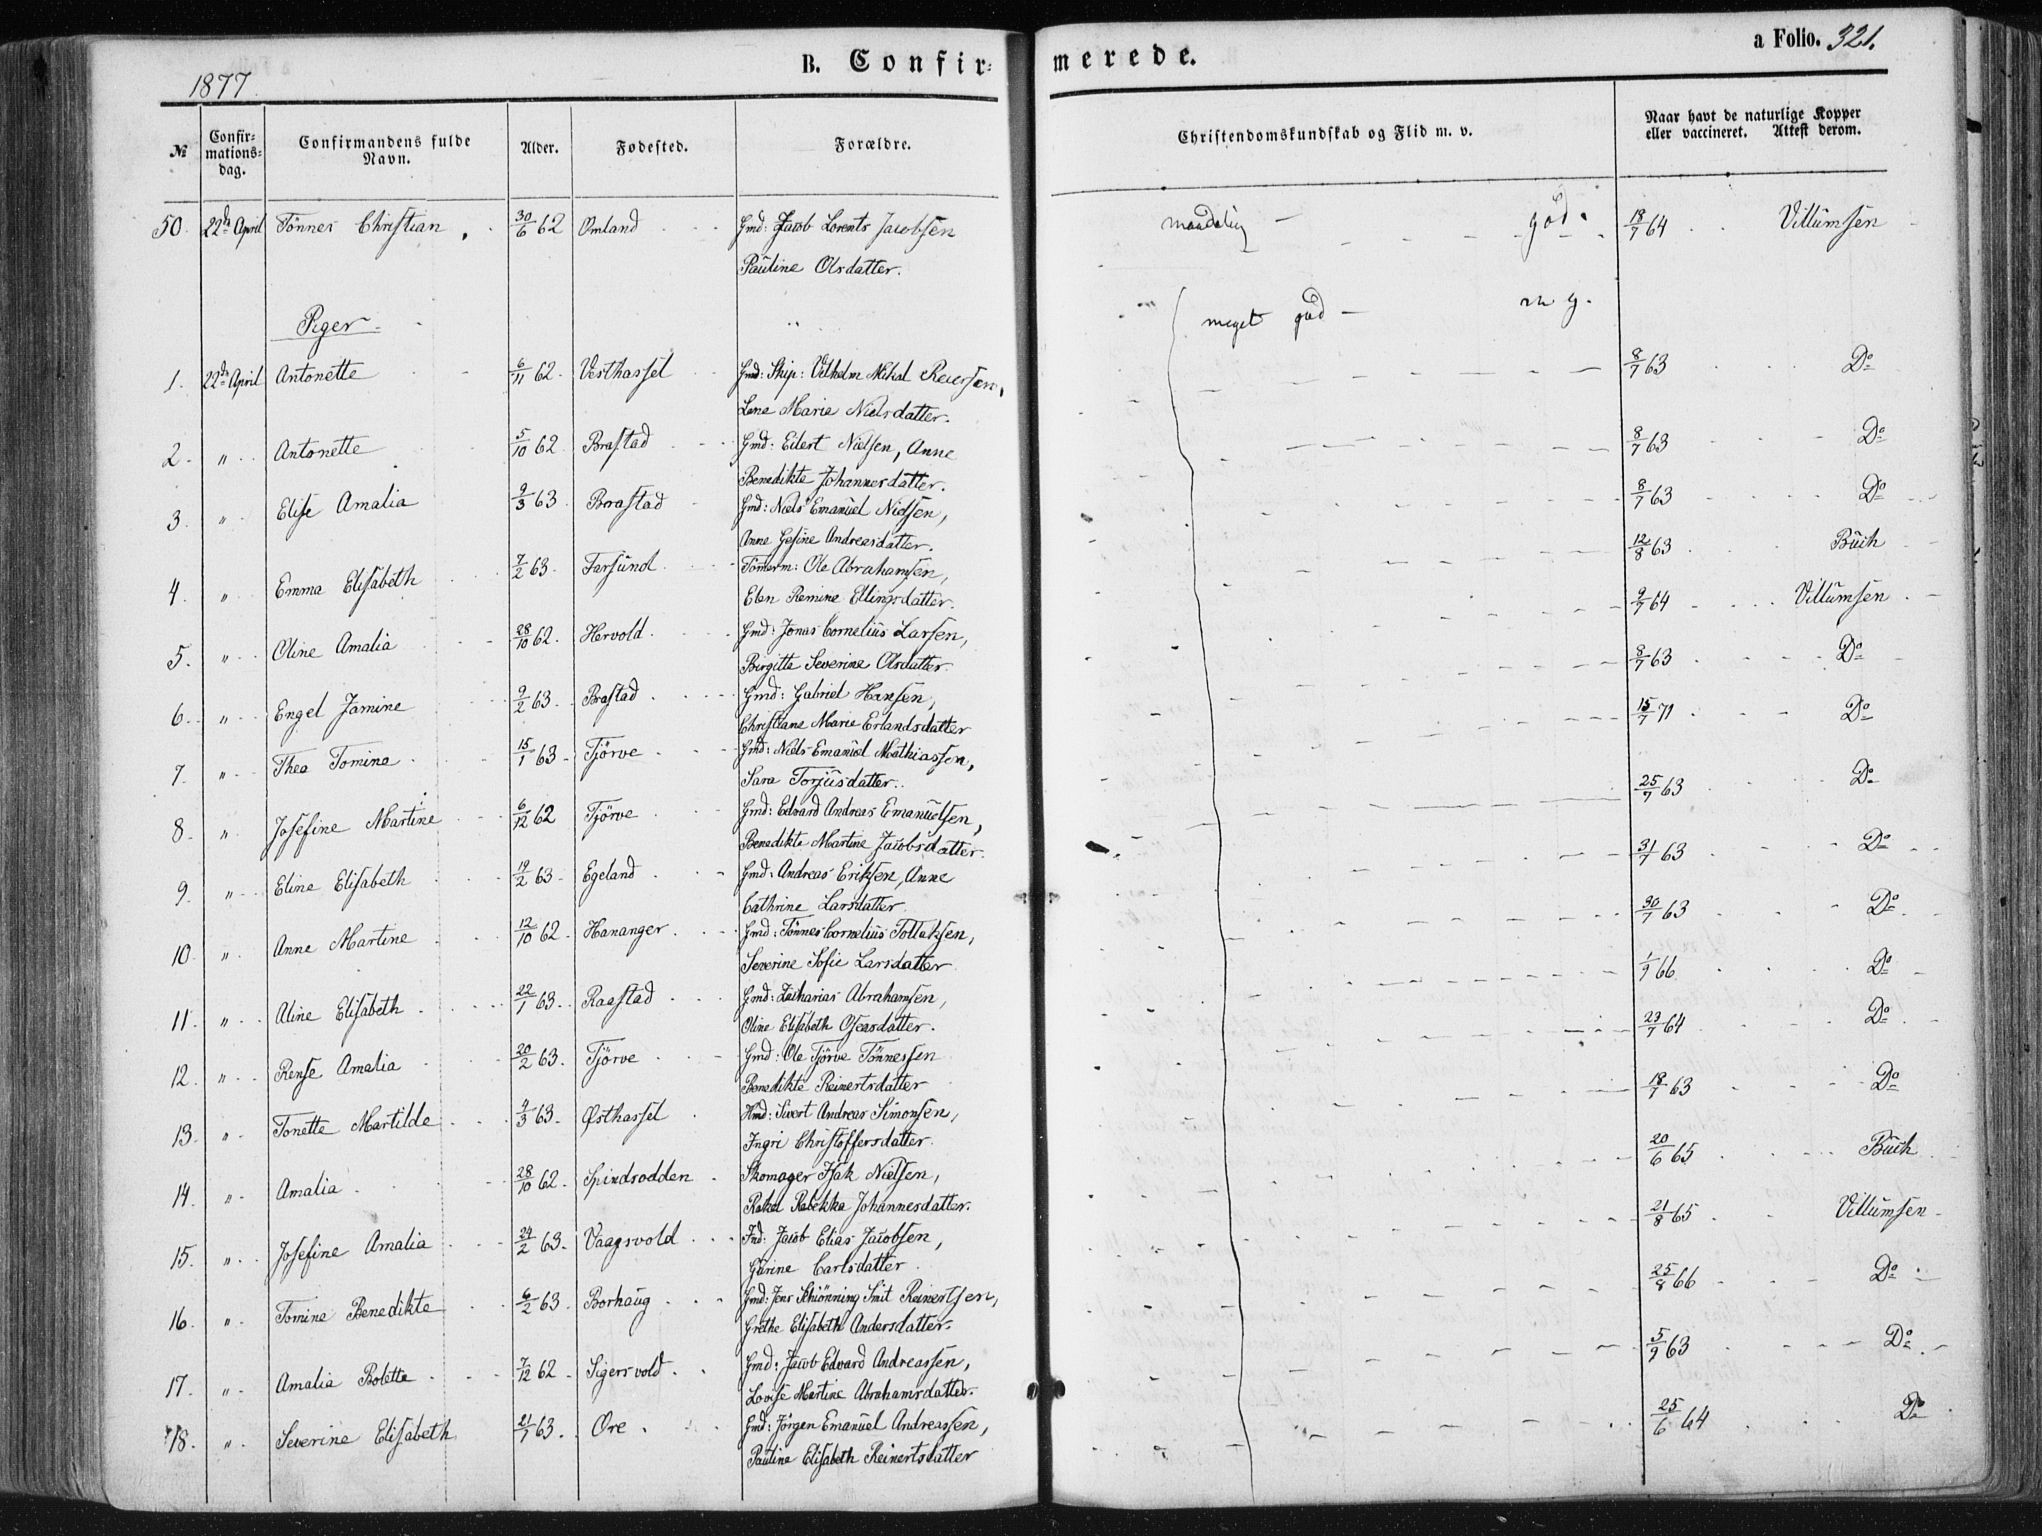 1877.
B. Confir-
merede.
a Folio. 321.
№ Confir-mations-dag. Confirmandens fulde Navn. Alder. Fødested. Forældre. Christendomskundskab og Flid m. v. Naar havt de naturlige Kopper eller vaccineret. Attest derom.
50. 22de April Tönnes Christian 30/6 62 Omland Gmd: Jacob Lorents Jacobsen maadelig — god. 18/7 64 Villumsen
Pauline Olsdatter.
Piger. meget god — m g.
1. 22de April Antonette 6/11 62. Vesthassel Gmd: Skip: Vilhelm Mikal Reiersen, 8/7 63 Do
Lene Marie Nielsdatter.
2. " Antonette 5/10 62 Brastad Gmd: Eilert Nielsen, Anne 8/7 63 Do
Benedikte Johannesdatter.
3. " Elise Amalia 9/3 63 Brastad Gmd: Niels Emanuel Nielsen, 8/7 63 Do
Anne Gesine Andreasdatter.
4. " Emma Elisabeth 7/2 63. Farsund Tömerm: Ole Abrahamsen, 12/8 63 Buch
Elen Remine Ellingsdatter.
5. " Oline Amalia 28/10 62. Hervold Gmd: Jonas Cornelius Larsen, 9/7 64 Villumsen
Birgitte Severine Olsdatter.
6. " Engel Jamine 9/2 63. Brastad Gmd: Gabriel Hansen, 8/7 63 Do
Christiane Marie Erlandsdatter
7. " Thea Tomine 15/1 63 Tjörve Gmd: Niels Emanuel Mathiassen, 15/7 71 Do
Sara Torjusdatter.
8. " Josefine Martine 6/12 62 Tjörve Gmd: Edvard Andreas Emanuelsen, 25/7 63 Do
Benedikte Martine Jacobsdatter.
9. " Eline Elisabeth 19/2 63 Egeland Gmd: Andreas Eriksen, Anne 31/7 63 Do
Cathrine Larsdatter
10. " Anne Martine 12/10 62 Hananger Gmd: Tönnes Cornelius Tollaksen, 30/7 63 Do
Severine Sofie Larsdatter
11. " Aline Elisabeth 22/1 63 Raastad Gmd: Zacharias Abrahamsen, 1/9 66 Do
Oline Elisabeth Osearsdatter.
12. " Rense Amalia 20/2 63. Tjörve Gmd: Ole Tjörve Tönnessen 23/7 64 Do
Benedikte Reinertsdatter
13. " Tonette Martilde 4/3 63. Østhassel Hmd: Sivert Andreas Simonsen, 18/7 63 Do
Ingri Christoffersdatter.
14. " Amalia 28/10 62. Spindsodden Skomager Isak Nielsen, 20/6 65 Buch
Rakel Rebekka Johannesdatter.
15. " Josefine Amalia 24/2 63. Vaagsvold Ind: Jacob Elias Jacobsen, 21/8 65 Villumsen
Gurine Carlsdatter
16. " Tomine Benedikte 6/2 63. Borhaug Gmd: Jens Schiönning Smit Reinertsen, 25/8 66 Do
Grethe Elisabeth Andersdatter.
17. " Amalia Bolette 7/12 62 Sigersvold Gmd: Jacob Edvard Andreassen, 5/9 63 Do
Lovise Martine Abrahamsdatter.
18. " Severine Elisabeth 21/7 63. Ore Gmd: Jörgen Emanuel Andreassen, 25/6 64 Do
Pauline Elisabeth Reinertsdatter